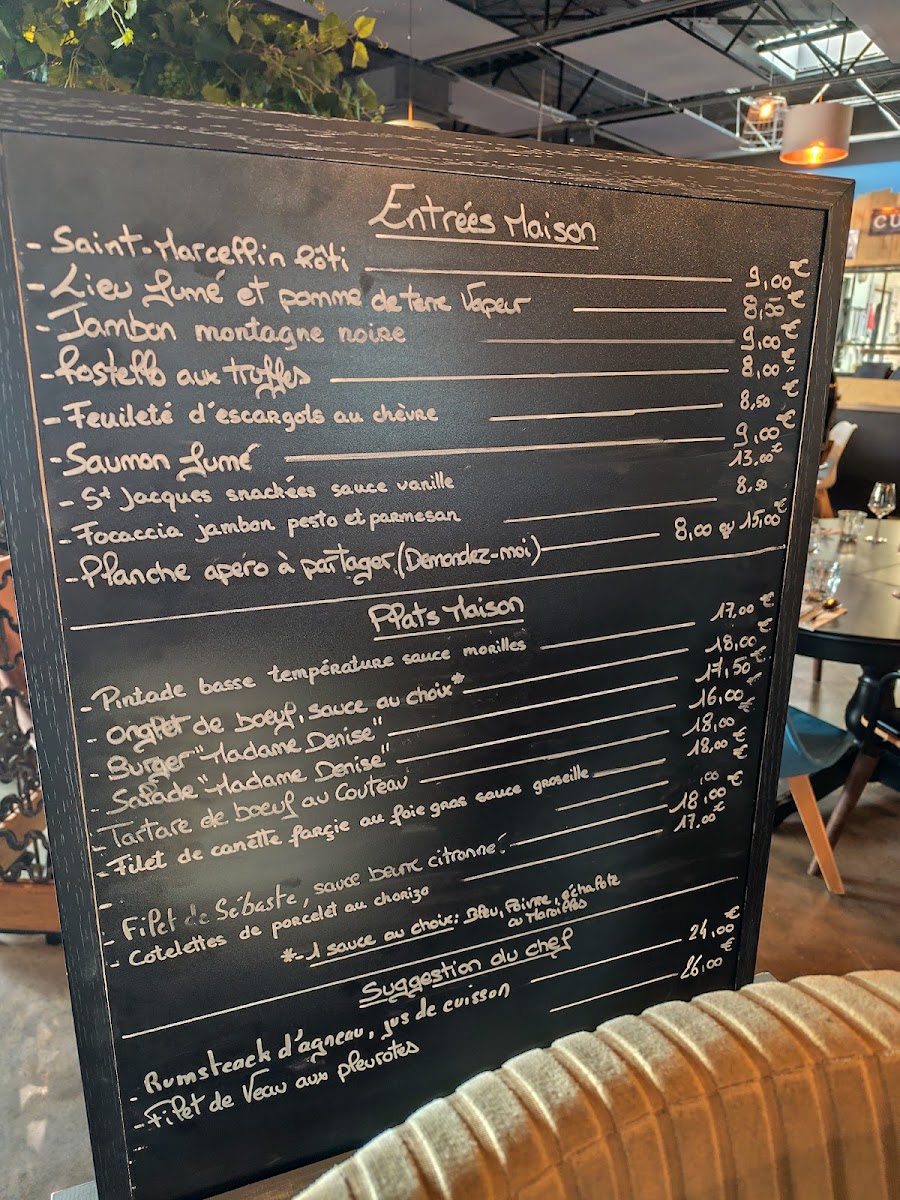 Entrées Maison
- Saint-Marcellin Rôti 9,00 €
- Lieu fumé et pomme de terre Vapeur 8,50 €
- Jambon montagne noire 9,00 €
- Rostello aux truffes 8,00 €
- Feuileté d'escargots au chèvre 8,50 €
- Saumon fumé 9,00 €
- St Jacques snackées sauce vanille 13,00 €
- Focaccia jambon pesto et parmesan 8,50
- Planche apéro à partager (Demandez-moi) 8,00 ou 15,00 €
Plats Maison
- Pintade basse température sauce morilles 17,00 €
- Onglet de boeuf, sauce au choix* 18,00 €
- Burger "Madame Denise" 17,50 €
- Salade "Madame Denise" 16,00 €
- Tartare de boeuf au Couteau 18,00 €
- Filet de canette farçie au foie gras sauce groseille 18,00 €
- ,00
- Filet de Sébaste, sauce beurre citronné. 18,00 €
- Cotelettes de porcelet au chorizo 17,00 €
*- 1 sauce au choix: Bleu, Poivre, échalote
ou Maroilles
Suggestion du chef
- Rumsteack d'agneau, jus de cuisson 24,00 €
- Filet de Veau aux pleurotes 26,00 €
CU